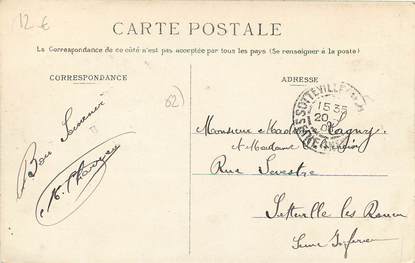 12 €
CARTE POSTALE
La Correspondance de ce côté n'est pas acceptée par tous les pays (Se renseigner à la poste)
CORRESPONDANCE
Bon Souvenir
ADRESSE
SOTTEVILLE
15 35
20
Monsieur Madame
et Madame
Rue Sevestre
Sotteville les Rouen
Seine Inférieure